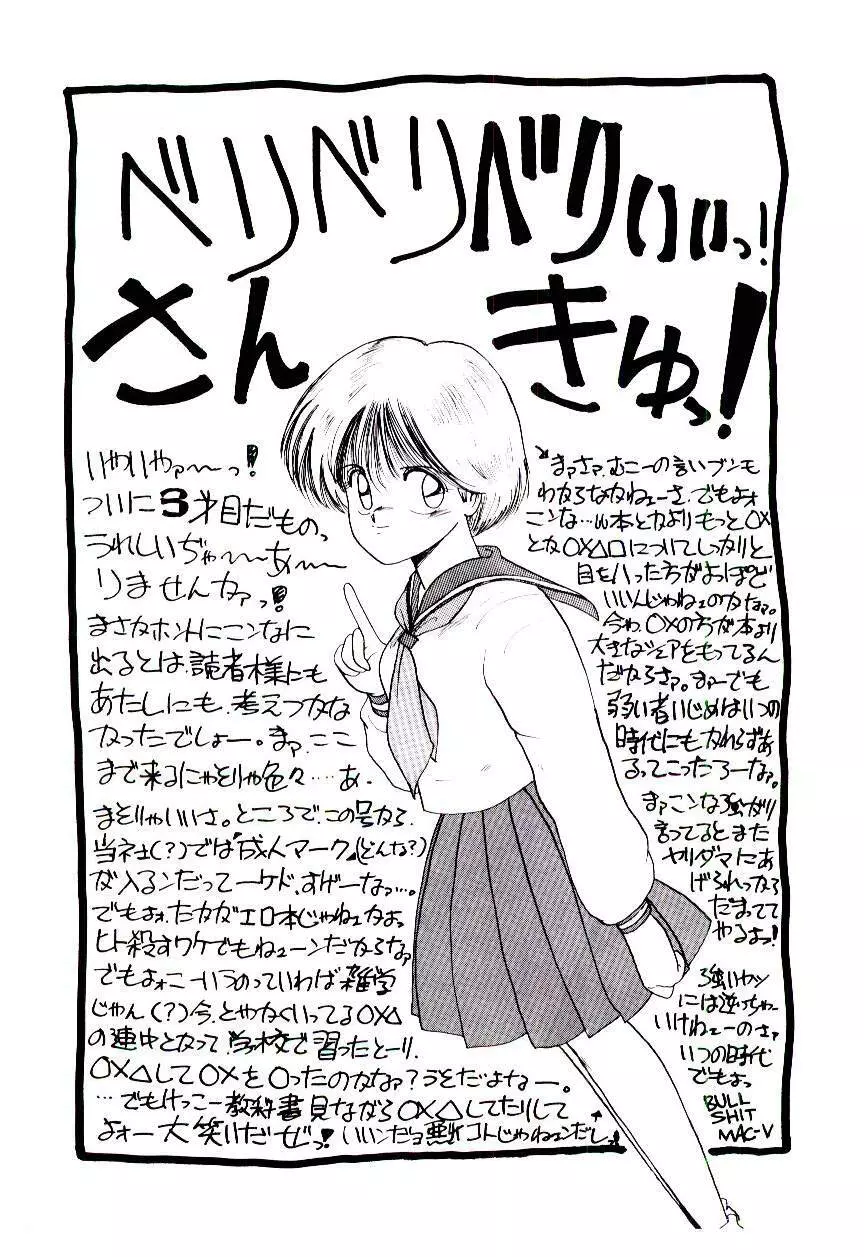 ベリベリベリいいっ!
さんきゅっ!
いやいやァ〜っ!
ついに3才目だものっ
うれしいぢゃ〜〜あ〜
りませんかァっ!
まさかホントにこンなに
出るとは、読者様にも
あたしにも、考えつかな
かったでしょー。まァ、ここ
まで来るにゃそりゃ色々……あ、
まぁそりゃいいさ。ところで、この号から
当社(?)では「成人マーク」(どんな?)
が入るンだってーケド、すげーなァ…。
でもよォ、たかがエロ本じゃねェかよっ
ヒト殺すワケでもねェーンだからなァ
でもよォこーいうのっていわば雑学
じゃん(?)今、とやかくいってる○×△
の連中となって、学校で習ったとーり、
○×△して○×を○ったのかなァ?うそだよなー。
…でもけっこー教科書見ながら○×△してたりして
よォー大笑いだぜっ!いいンだョ悪いコトじゃねェンだし。
まァさァ、むこーの言いブンも
わからなかねェーさ、でもよォ
こンな…い本とかよりもっと○×
とか○×△□についてしっかりと
目をハった方がよっぽど
いいんじゃねェのかなァ。
今ゎ、○×の方が本より
大きなシェアをもってるん
だからさァ。まァーでも
弱い者いじめはいつの
時代にもかわらずあ
るってこったろーなァ。
まァこンな強がり
言ってるとまた
ヤリダマにあ
げられっから
だまってて
やるよっ!
強いヤツ
には逆っちゃー
いけねェーのさァ
いつの時代
でもよっ
BULL
SHIT
MAC-V